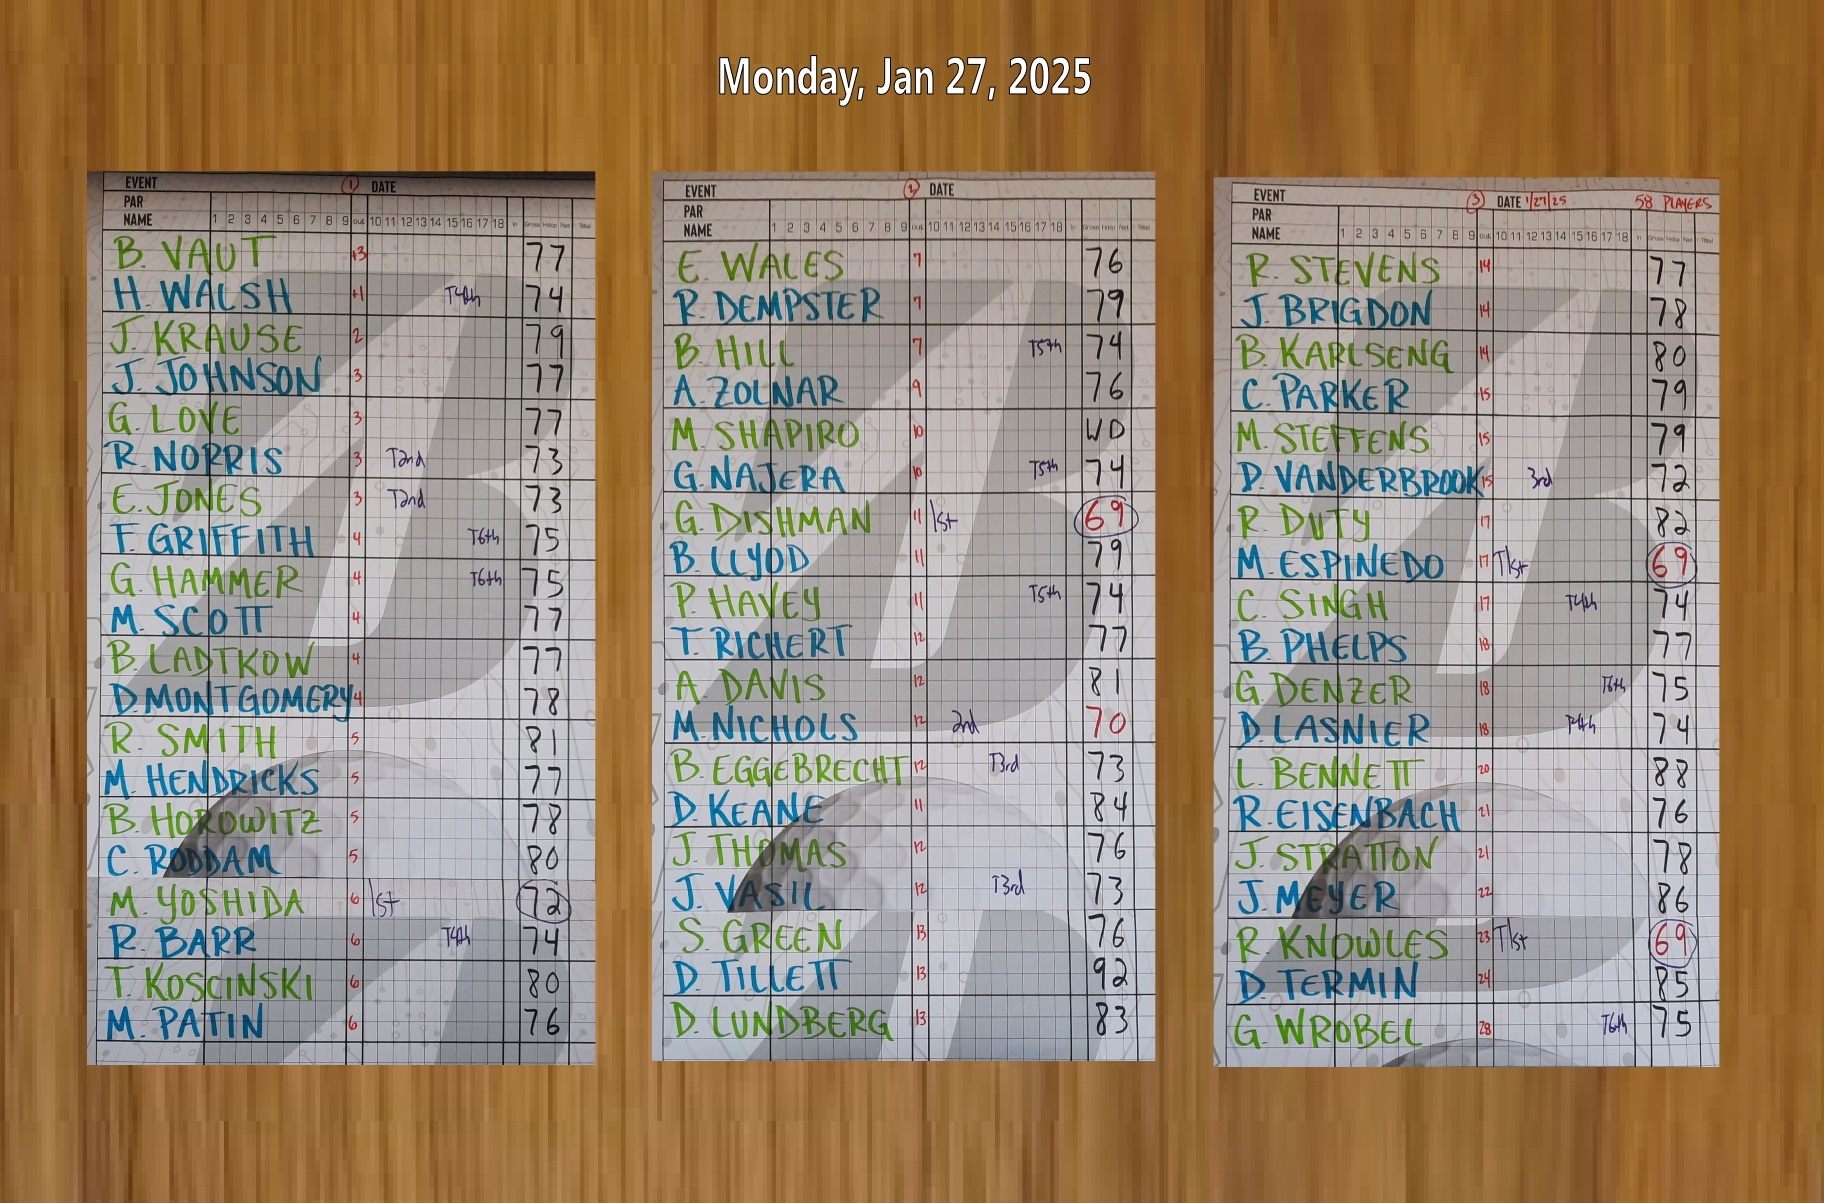 Monday, Jan 27, 2025
EVENT 1 DATE
PAR
NAME 1 2 3 4 5 6 7 8 9 out 10 11 12 13 14 15 16 17 18 in Gross Hdcp Net Total
B. VAUT +3 77
H. WALSH +1 T4th 74
J. KRAUSE 2 79
J. JOHNSON 3 77
G. LOVE 3 77
R. NORRIS 3 T2nd 73
E. JONES 3 T2nd 73
F. GRIFFITH 4 T6th 75
G. HAMMER 4 T6th 75
M. SCOTT 4 77
B. LADTKOW 4 77
D. MONTGOMERY 4 78
R. SMITH 5 81
M. HENDRICKS 5 77
B. HOROWITZ 5 78
C. RODDAM 5 80
M. YOSHIDA 6 1st 72
R. BARR 6 T4th 74
T. KOSCINSKI 6 80
M. PATIN 6 76
EVENT 2 DATE
PAR
NAME 1 2 3 4 5 6 7 8 9 out 10 11 12 13 14 15 16 17 18 in Gross Hdcp Net Total
E. WALES 7 76
R. DEMPSTER 7 79
B. HILL 7 T5th 74
A. ZOLNAR 9 76
M. SHAPIRO 10 WD
G. NAJERA 10 T5th 74
G. DISHMAN 11 1st 69
B. LLYOD 11 79
P. HAVEY 11 T5th 74
T. RICHERT 12 77
A. DAVIS 12 81
M. NICHOLS 12 2nd 70
B. EGGEBRECHT 12 T3rd 73
D. KEANE 11 84
J. THOMAS 12 76
J. VASIL 12 T3rd 73
S. GREEN 13 76
D. TILLETT 13 92
D. LUNDBERG 13 83
EVENT 3 DATE 1/27/25 58 PLAYERS
PAR
NAME 1 2 3 4 5 6 7 8 9 out 10 11 12 13 14 15 16 17 18 in Gross Hdcp Net Total
R. STEVENS 14 77
J. BRIGDON 14 78
B. KARLSENG 14 80
C. PARKER 15 79
M. STEFFENS 15 79
D. VANDERBROOK 15 3rd 72
R. DUTY 17 82
M. ESPINEDO 17 T1st 69
C. SINGH 17 T4th 74
B. PHELPS 18 77
G. DENZER 18 T6th 75
D. LASNIER 18 T4th 74
L. BENNETT 20 88
R. EISENBACH 21 76
J. STRATTON 21 78
J. MEYER 22 86
R. KNOWLES 23 T1st 69
D. TERMIN 24 85
G. WROBEL 28 T6th 75